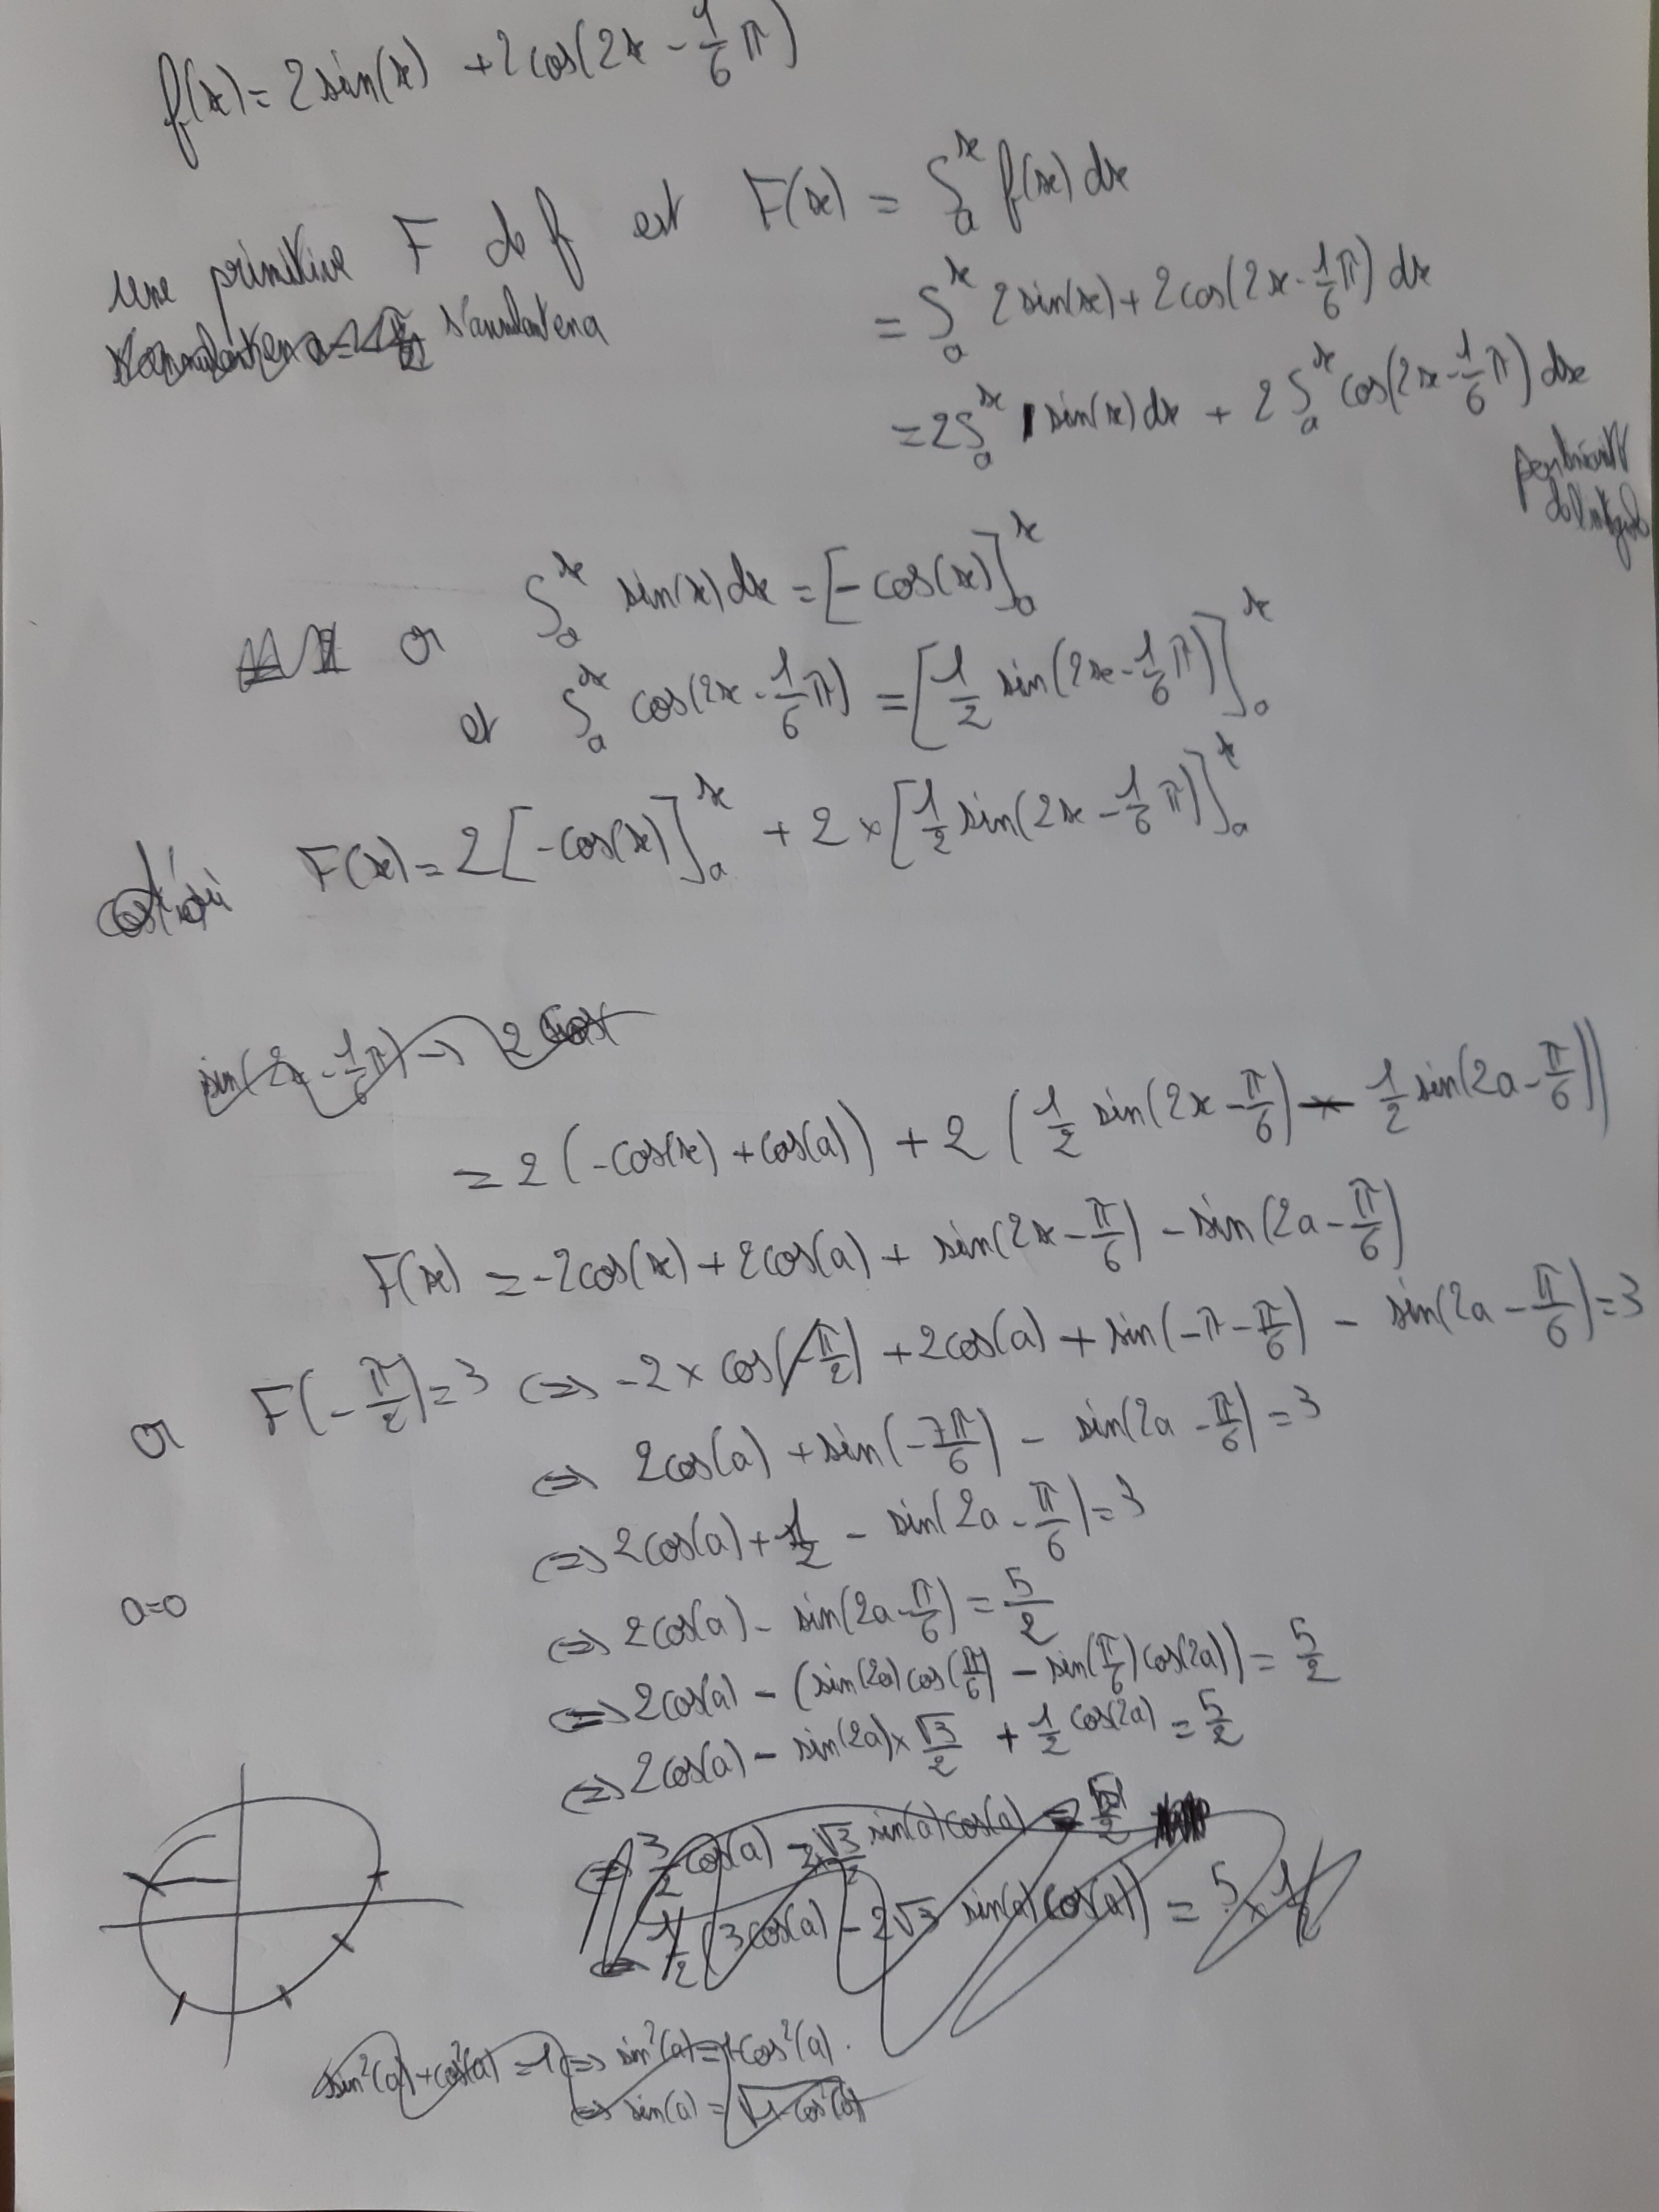 f(x) = 2 sin(x) + 2 cos(2x - 1/6 π)
une primitive F de f est F(x) = ∫ₐˣ f(x) dx
s'annulant en a
= ∫ₐˣ 2 sin(x) + 2 cos(2x - 1/6 π) dx
= 2 ∫ₐˣ sin(x) dx + 2 ∫ₐˣ cos(2x - 1/6 π) dx
par
or ∫ₐˣ sin(x) dx = [-cos(x)]ₐˣ
et ∫ₐˣ cos(2x - 1/6 π) = [1/2 sin(2x - 1/6 π)]ₐˣ
F(x) = 2 [-cos(x)]ₐˣ + 2 × [1/2 sin(2x - 1/6 π)]ₐˣ
sin(2x - 1/6 π) → 2
= 2 (-cos(x) + cos(a)) + 2 (1/2 sin(2x - π/6) - 1/2 sin(2a - π/6))
F(x) = -2cos(x) + 2cos(a) + sin(2x - π/6) - sin(2a - π/6)
or F(-π/2) = 3 ⟺ -2 × cos(-π/2) + 2cos(a) + sin(-π - π/6) - sin(2a - π/6) = 3
⟺ 2cos(a) + sin(-7π/6) - sin(2a - π/6) = 3
⟺ 2cos(a) + 1/2 - sin(2a - π/6) = 3
a=0
⟺ 2cos(a) - sin(2a - π/6) = 5/2
⟺ 2cos(a) - (sin(2a) cos(π/6) - sin(π/6) cos(2a)) = 5/2
⟺ 2cos(a) - sin(2a) × √3/2 + 1/2 cos(2a) = 5/2
⟺ 3/2 cos(a) - 2√3/2 sin(a) cos(a) = 5/2
1/2 (3cos(a) - 2√3 sin(a) cos(a)) = 5 × 1/2
sin²(a) + cos²(a) = 1 ⟺ sin²(a) = 1-cos²(a)
⟺ sin(a) = √1-cos²(a)